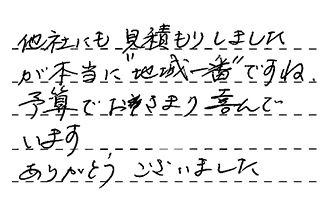 他社にも見積もりしました
が本当に"地域一番"ですね、
予算でおさまり喜んで
います
ありがとうございました